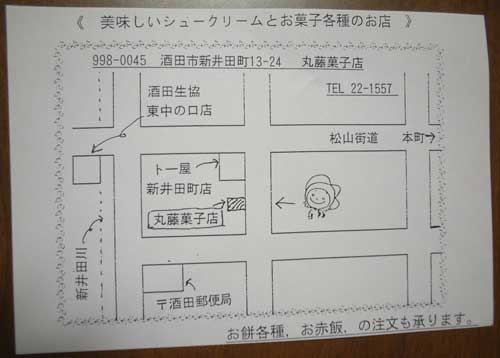 《　美味しいシュークリームとお菓子各種のお店　》
998-0045　酒田市新井田町13-24　丸藤菓子店
TEL 22-1557
酒田生協
東中の口店
松山街道　本町→
トー屋
新井田町店
丸藤菓子店
新井田川
〒酒田郵便局
お餅各種，お赤飯，の注文も承ります。